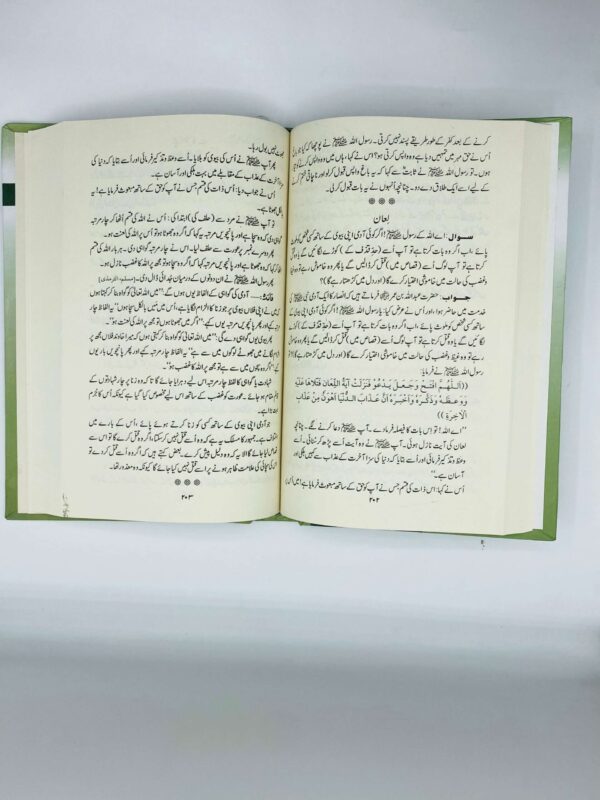 کرنے کے بعد کفر کے طور طریقے پسند نہیں کرتی۔ رسول اللہ ﷺ نے پوچھا کیا
اُس نے حق مہر میں تمہیں دیا ہے وہ واپس کرتی ہو؟ اس نے کہا، ہاں میں وہ واپس کرنے کو تیار
ہوں۔ تو رسول اللہ ﷺ نے ثابتؓ سے کہا کہ یہ باغ واپس قبول کر لو اور ناچاقی ختم کرنے
کے لیے اسے ایک طلاق دے دو۔ چنانچہ اُنہوں نے یہ بات قبول کر لی۔
لعان
سوال: اے اللہ کے رسول ﷺ! اگر کوئی آدمی اپنی بیوی کے ساتھ کسی شخص کو ملوث
پائے، اب اگر وہ بات کرتا ہے تو آپ اُسے (حدِ قذف کے) کوڑے لگائیں گے یا وہ قتل
کرتا ہے تو آپ لوگ اُسے (قصاص میں) قتل کر ڈالیں گے یا وہ خاموش رہے تو وہ غیظ
وغضب کی حالت میں خاموشی اختیار کرے گا (اور دل میں کڑھتا رہے گا)؟
جواب: حضرت عبداللہ بن عمرؓ فرماتے ہیں کہ انصار کا ایک آدمی نبی ﷺ کی
خدمت میں حاضر ہوا، اور اُس نے عرض کیا: یا رسول اللہ ﷺ! اگر کوئی آدمی اپنی بیوی کے
ساتھ کسی شخص کو ملوث پائے، اب اگر وہ بات کرتا ہے تو آپ اُسے (حد قذف کے) کوڑے
لگائیں گے یا وہ قتل کرتا ہے تو آپ لوگ اُسے (قصاص میں) قتل کر ڈالیں گے یا وہ خاموش
رہے تو وہ غیظ وغضب کی حالت میں خاموشی اختیار کرے گا (اور دل میں کڑھتا رہے گا)؟
رسول اللہ ﷺ نے فرمایا:
((اَللّٰهُمَّ افْتَحْ وَجَعَلَ يَدْعُوْ فَنَزَلَتْ آيَةُ اللِّعَانِ فَتَلَاهَا عَلَيْهِ
وَوَعَظَهُ وَذَكَّرَهُ وَأَخْبَرَهُ أَنَّ عَذَابَ الدُّنْيَا أَهْوَنُ مِنْ عَذَابِ
الْآخِرَةِ))
"اے اللہ! تو اس بات کا فیصلہ فرما دے۔ آپ ﷺ دعا کرنے لگے۔ چنانچہ
لعان کی آیت نازل ہوئی۔ آپ ﷺ نے وہ آیت اُسے پڑھ کر سنائی۔ اُسے
وعظ ونذکیر فرمائی اور اُسے بتایا کہ دنیا کی سزا آخرت کے عذاب سے ہلکی اور
آسان ہے۔"
اُس نے کہا: اس ذات کی قسم جس نے آپ کو حق کے ساتھ مبعوث فرمایا ہے! میں اس پر
۲۰۲
جھوٹ نہیں بول رہا۔
پھر آپ ﷺ نے اُس کی بیوی کو بلایا۔ اُسے وعظ ونذکیر فرمائی اور اُسے بتایا کہ دنیا کی
سزا آخرت کے عذاب کے مقابلے میں بہت ہلکی اور آسان ہے۔
اُس نے جواب دیا: اُس ذات کی قسم جس نے آپ کو حق کے ساتھ مبعوث فرمایا ہے! یہ
بالکل جھوٹا ہے۔
تو آپ ﷺ نے مرد سے (حلف کی) ابتدا کی۔ اُس نے اللہ کی قسم اُٹھا کر چار مرتبہ
گواہی دی کہ وہ سچا ہے اور پانچویں مرتبہ یہ کہا کہ اگر وہ جھوٹا ہو تو اُس پر اللہ کی لعنت ہو۔
دوسرے نمبر پر عورت سے حلف لیا۔ اس نے چار مرتبہ گواہی دی۔ ہر بار اللہ کی قسم
کھا کر کہا کہ وہ جھوٹا ہے اور پانچویں مرتبہ کہا کہ اگر وہ سچا ہو تو اُس پر اللہ کا غضب نازل ہو۔
پھر آپ ﷺ نے ان دونوں کے درمیان جدائی ڈال دی۔ [مسلم، الترمذی]
فائدہ: آدمی کی گواہی کے الفاظ یوں ہوں گے: "میں اللہ تعالیٰ کو گواہ بنا کر کہتا ہوں
کہ میں نے اپنی فلاں بیوی پر جو زنا کا الزام لگایا ہے، اُس میں بالکل سچا ہوں" یہ الفاظ چار
مرتبہ کہے گا اور پھر پانچویں مرتبہ کہے گا کہ "اگر میں جھوٹا ہوں تو مجھ پر اللہ کی لعنت ہو"۔
پھر عورت یوں گواہی دے گی: "میں اللہ تعالیٰ کو گواہ بنا کر کہتی ہوں کہ میرا خاوند فلاں مجھ پر
الزام لگانے میں جھوٹے لوگوں میں سے ہے" یہ الفاظ چار مرتبہ کہے اور پھر پانچویں بار یوں
کہے "اگر وہ سچوں میں سے ہے تو مجھ پر اللہ کا غضب ہو"۔
شہادت یا گواہی کا لفظ چار مرتبہ اس لیے دہرایا جائے گا تاکہ وہ زنا پر چار شہادتوں کے
قائم مقام ہو جائے۔ عورت کو غضب کے ساتھ اس لیے مخصوص کیا گیا ہے کیونکہ اُس کا جرم
بڑا ہے۔
جو آدمی اپنی بیوی کے ساتھ کسی کو زنا کرتے ہوئے پائے، اُس کے بارے میں
اختلاف ہے۔ جمہور کا مسلک یہ ہے کہ وہ اُسے قتل نہیں کر سکتا، اگر وہ قتل کرے گا تو اس سے
قصاص لیا جائے گا الا یہ کہ وہ دلیل پیش کر دے۔ بعض کہتے ہیں کہ اگر وہ اُسے قتل کر دے تو
اس کی سچائی کی علامت ظاہر ہونے پر اُسے قتل نہیں کیا جائے گا کیونکہ وہ معذور تھا۔
۲۰۳